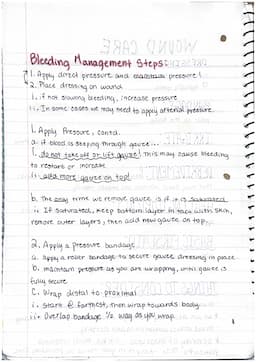 Bleeding Management Steps:
1. Apply direct pressure and maintain pressure!
2. Place dressing on wound
i. if not slowing bleeding, increase pressure
ii. In some cases we may need to apply arterial pressure.
1. Apply Pressure, contd.
a. if blood is seeping through gauze...
i. do not take off or lift gauze! This may cause bleeding
to restart or increase
ii. add more gauze on top!
b. the only time we remove gauze is if it is saturated
i. If saturated, keep bottom layer in tack with skin,
remove outer layers, then add new gauze on top.
2. Apply a pressure bandage
a. apply a roller bandage to secure gauze dressing in place
b. maintain pressure as you are wrapping, until gauze is
fully secure
c. Wrap distal to proximal
i. Start @ farthest, then wrap towards body
ii. Overlap bandage 1/2 way as you wrap